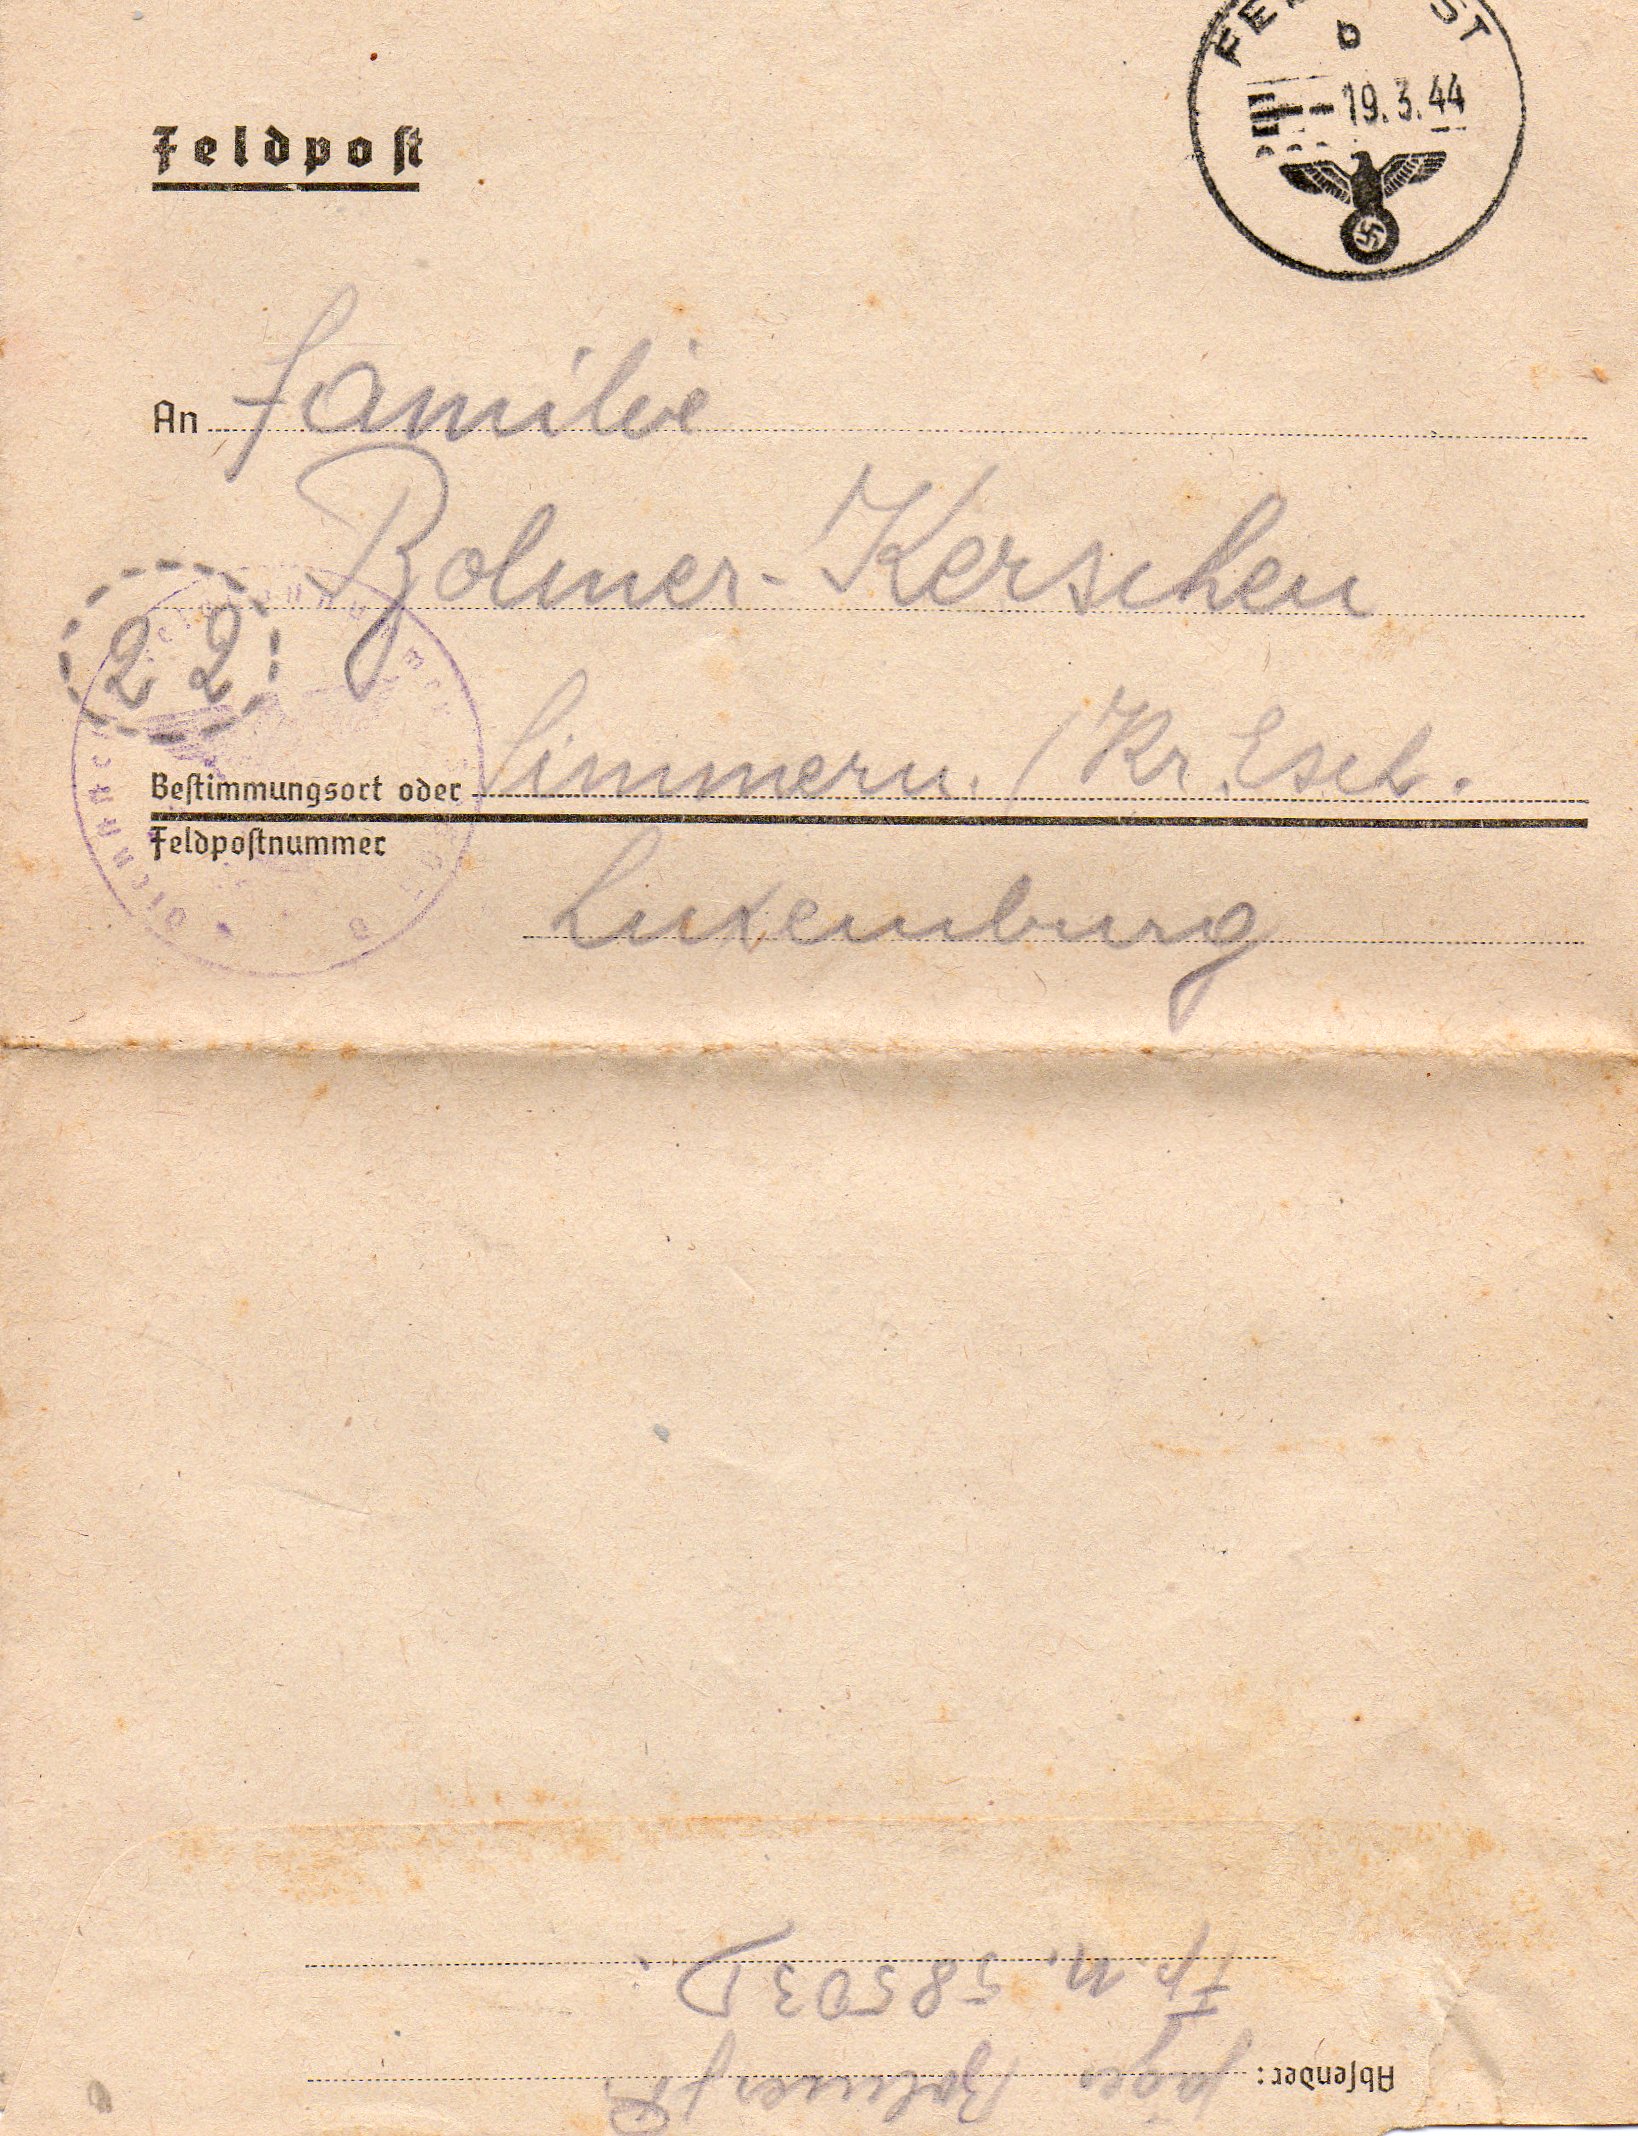 FELDPOST
b
-19.3.44
Feldpost
An Familie
Bolmer-Kerschen
22
Bestimmungsort oder Simmern. / Kr. Esch.
Feldpostnummer
Luxemburg
Absender: Jäger Bolmer
Fp.n. 58503 D.